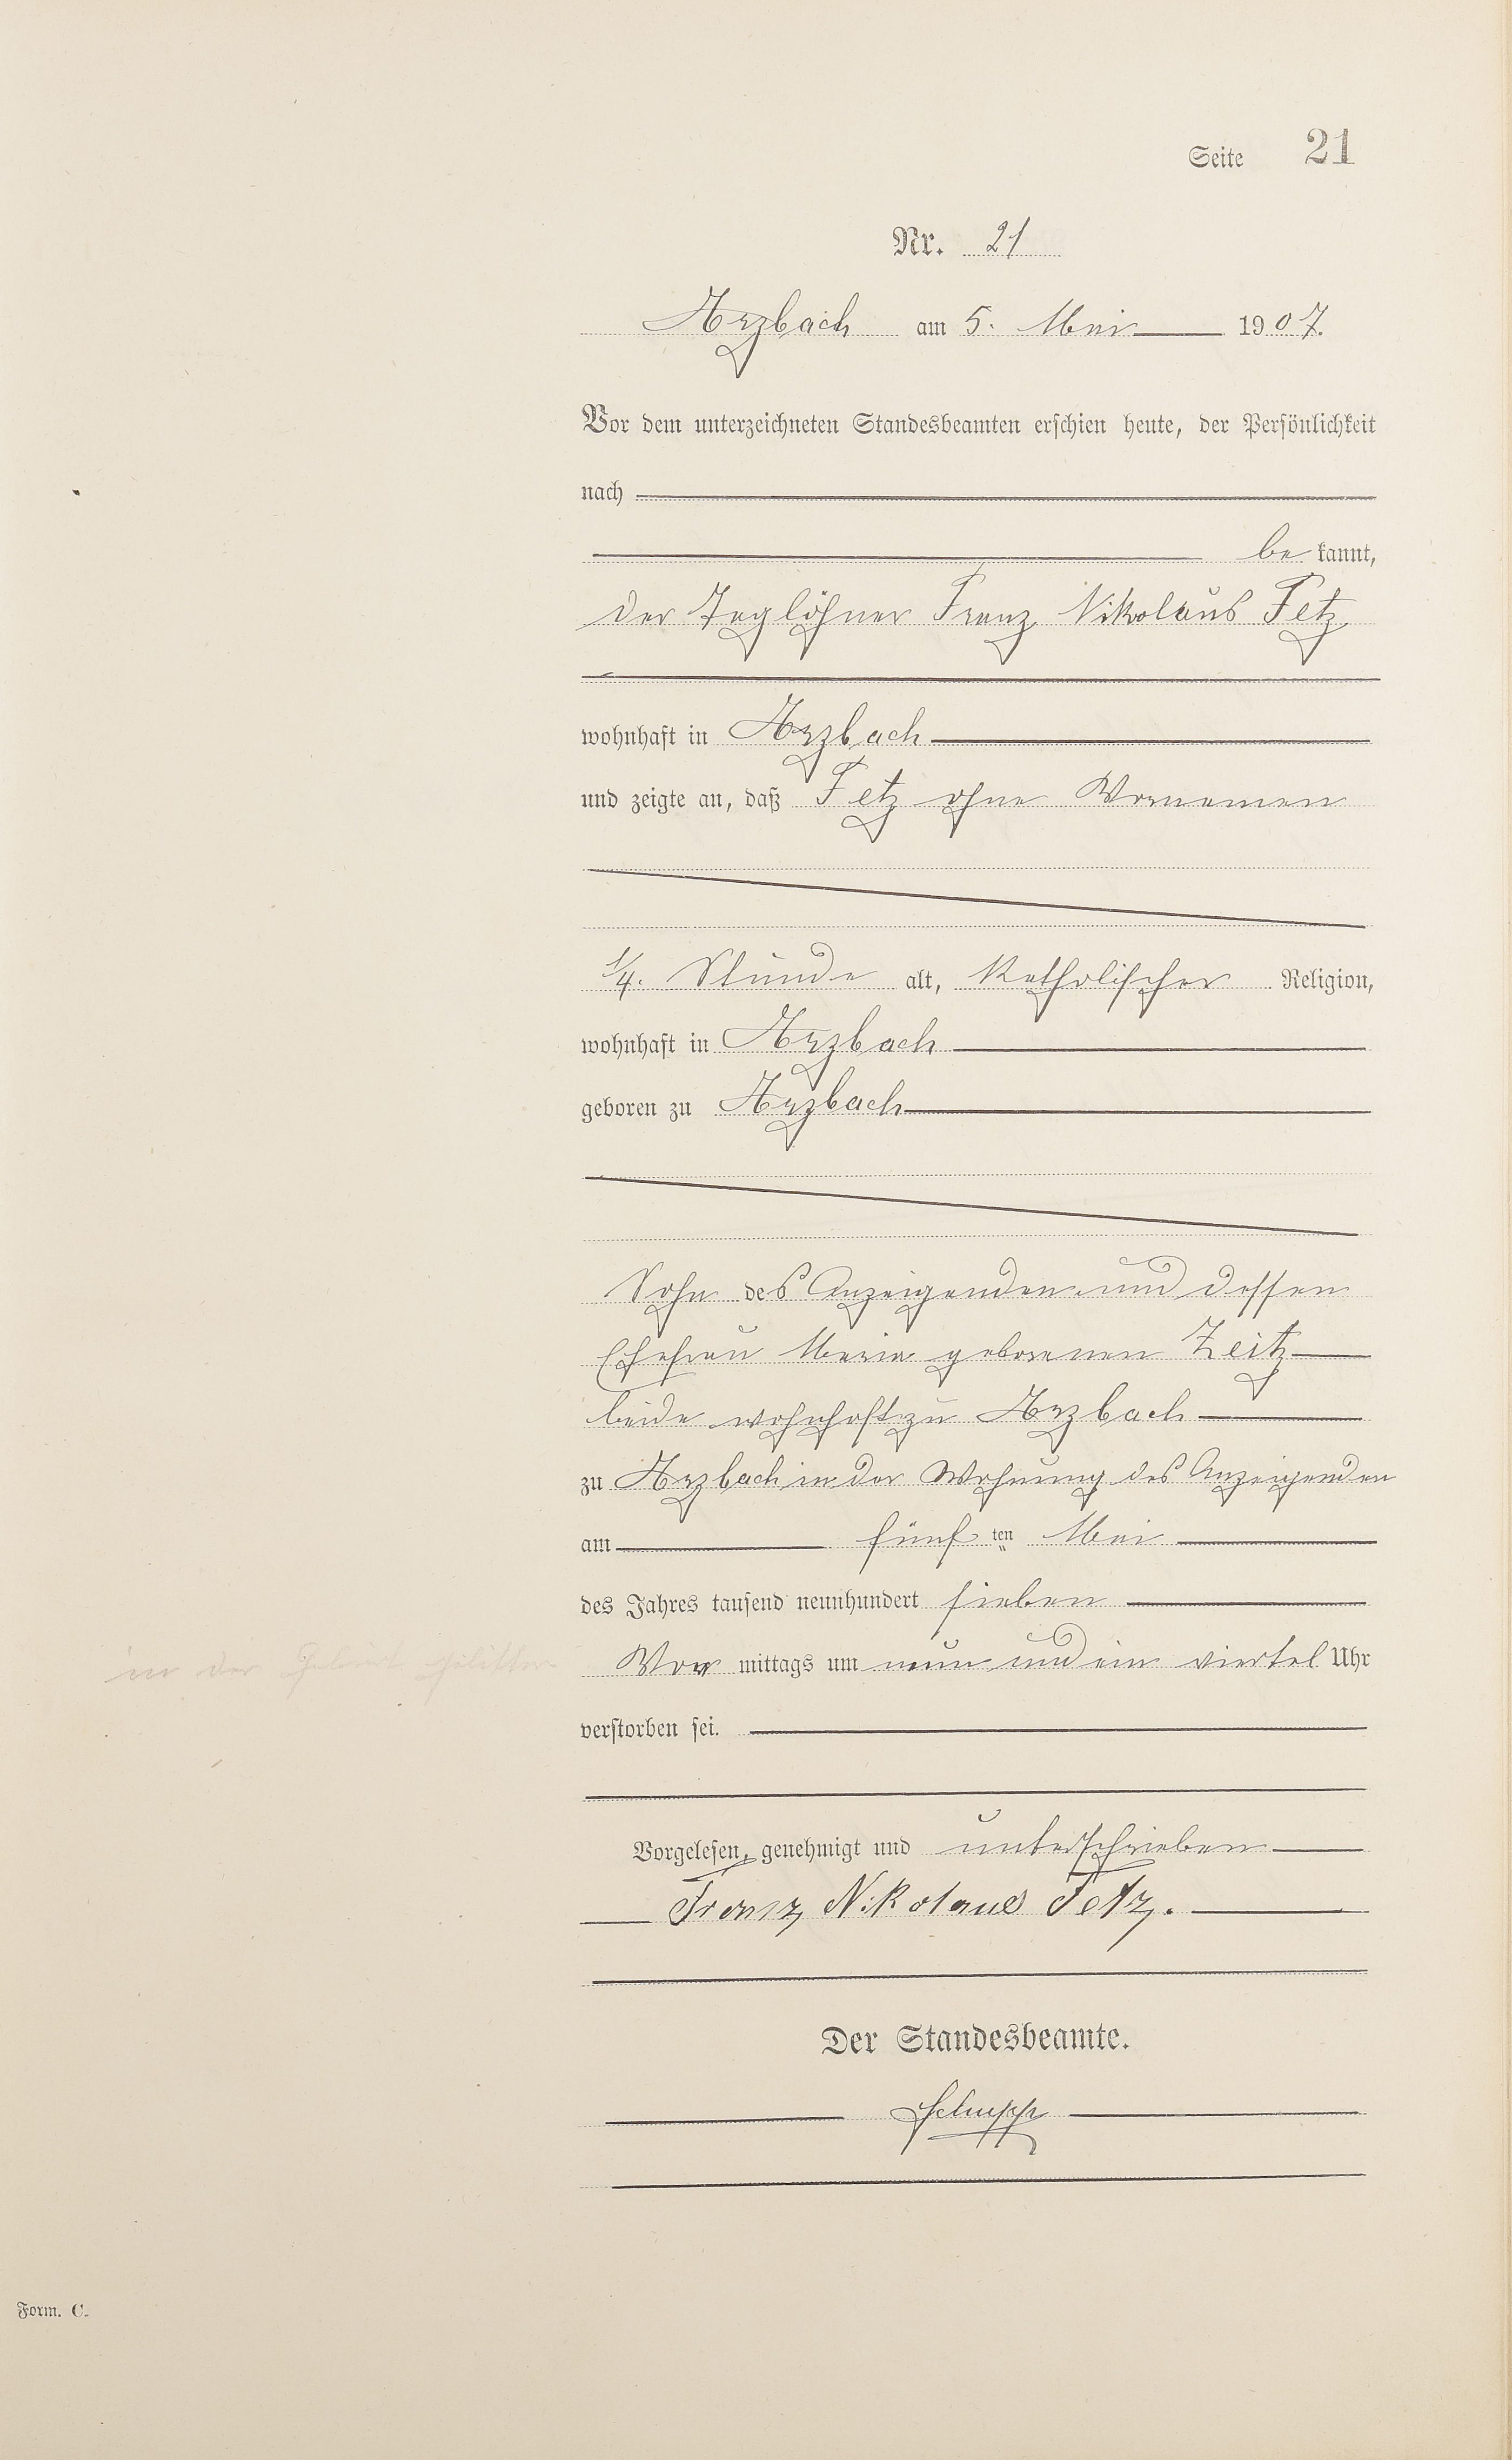 Seite 21
Nr. 21
Arzbach am 5. Mai 1907.
Vor dem unterzeichneten Standesbeamten erschien heute, der Persönlichkeit
nach
be kannt,
der Taglöhner Franz Nikolaus Fetz
wohnhaft in Arzbach
und zeigte an, daß Fetz ohne Vornamen
1/4. Stunde alt, katholischer Religion,
wohnhaft in Arzbach
geboren zu Arzbach
Sohn des Anzeigenden und dessen
Ehefrau Maria geborenen Zeitz
beide wohnhaft zu Arzbach
zu Arzbach in der Wohnung des Anzeigenden
am fünf ten Mai
des Jahres tausend neunhundert sieben
in der Geburt Vor mittags um neun und ein viertel Uhr
verstorben sei.
Vorgelesen, genehmigt und unterschrieben
Franz Nikolaus Fetz.
Der Standesbeamte.
Schupp
Form. C.